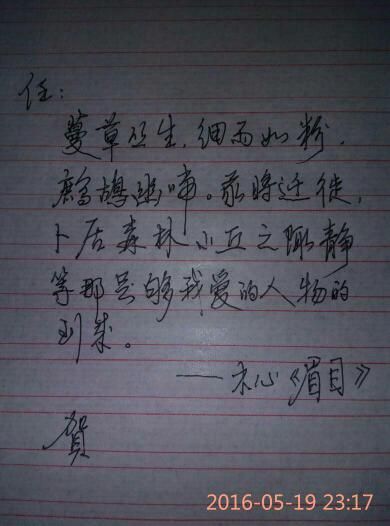 任:
蔓草丛生,细雨如粉,
鹧鸪幽啼。我将迁徙,
卜居森林小丘之陬,静
等那足够我爱的人物的
到来。
——木心《眉目》
贺
2016-05-19 23:17